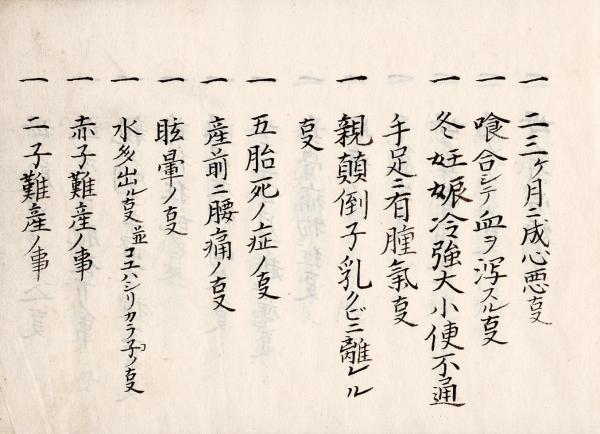 一 二三ヶ月ニ成心悪キ叓
一 喰合シテ血ヲ瀉スル叓
一 冬妊娠冷強大小便不通
手足ニ有腫氣叓
一 親顛倒子乳クビニ離レル
叓
一 五胎死ノ症ノ叓
一 産前ニ腰痛ノ叓
一 眩暈ノ叓
一 水多出ル叓並コエハシリカラ子ノ叓
一 赤子難産ノ事
一 二子難産ノ事